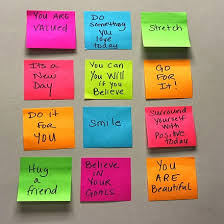 You ARE
VALUED
Do
Something
you
love
today
Stretch
It's a
New
Day
You Can
You Will
if you
Believe
Go
For
It!
Do it
for
You
Smile
Surround
Yourself
With
Positive
today
Hug
a
friend
Believe
IN
YOUR
GOALS
YOU
ARE
Beautiful